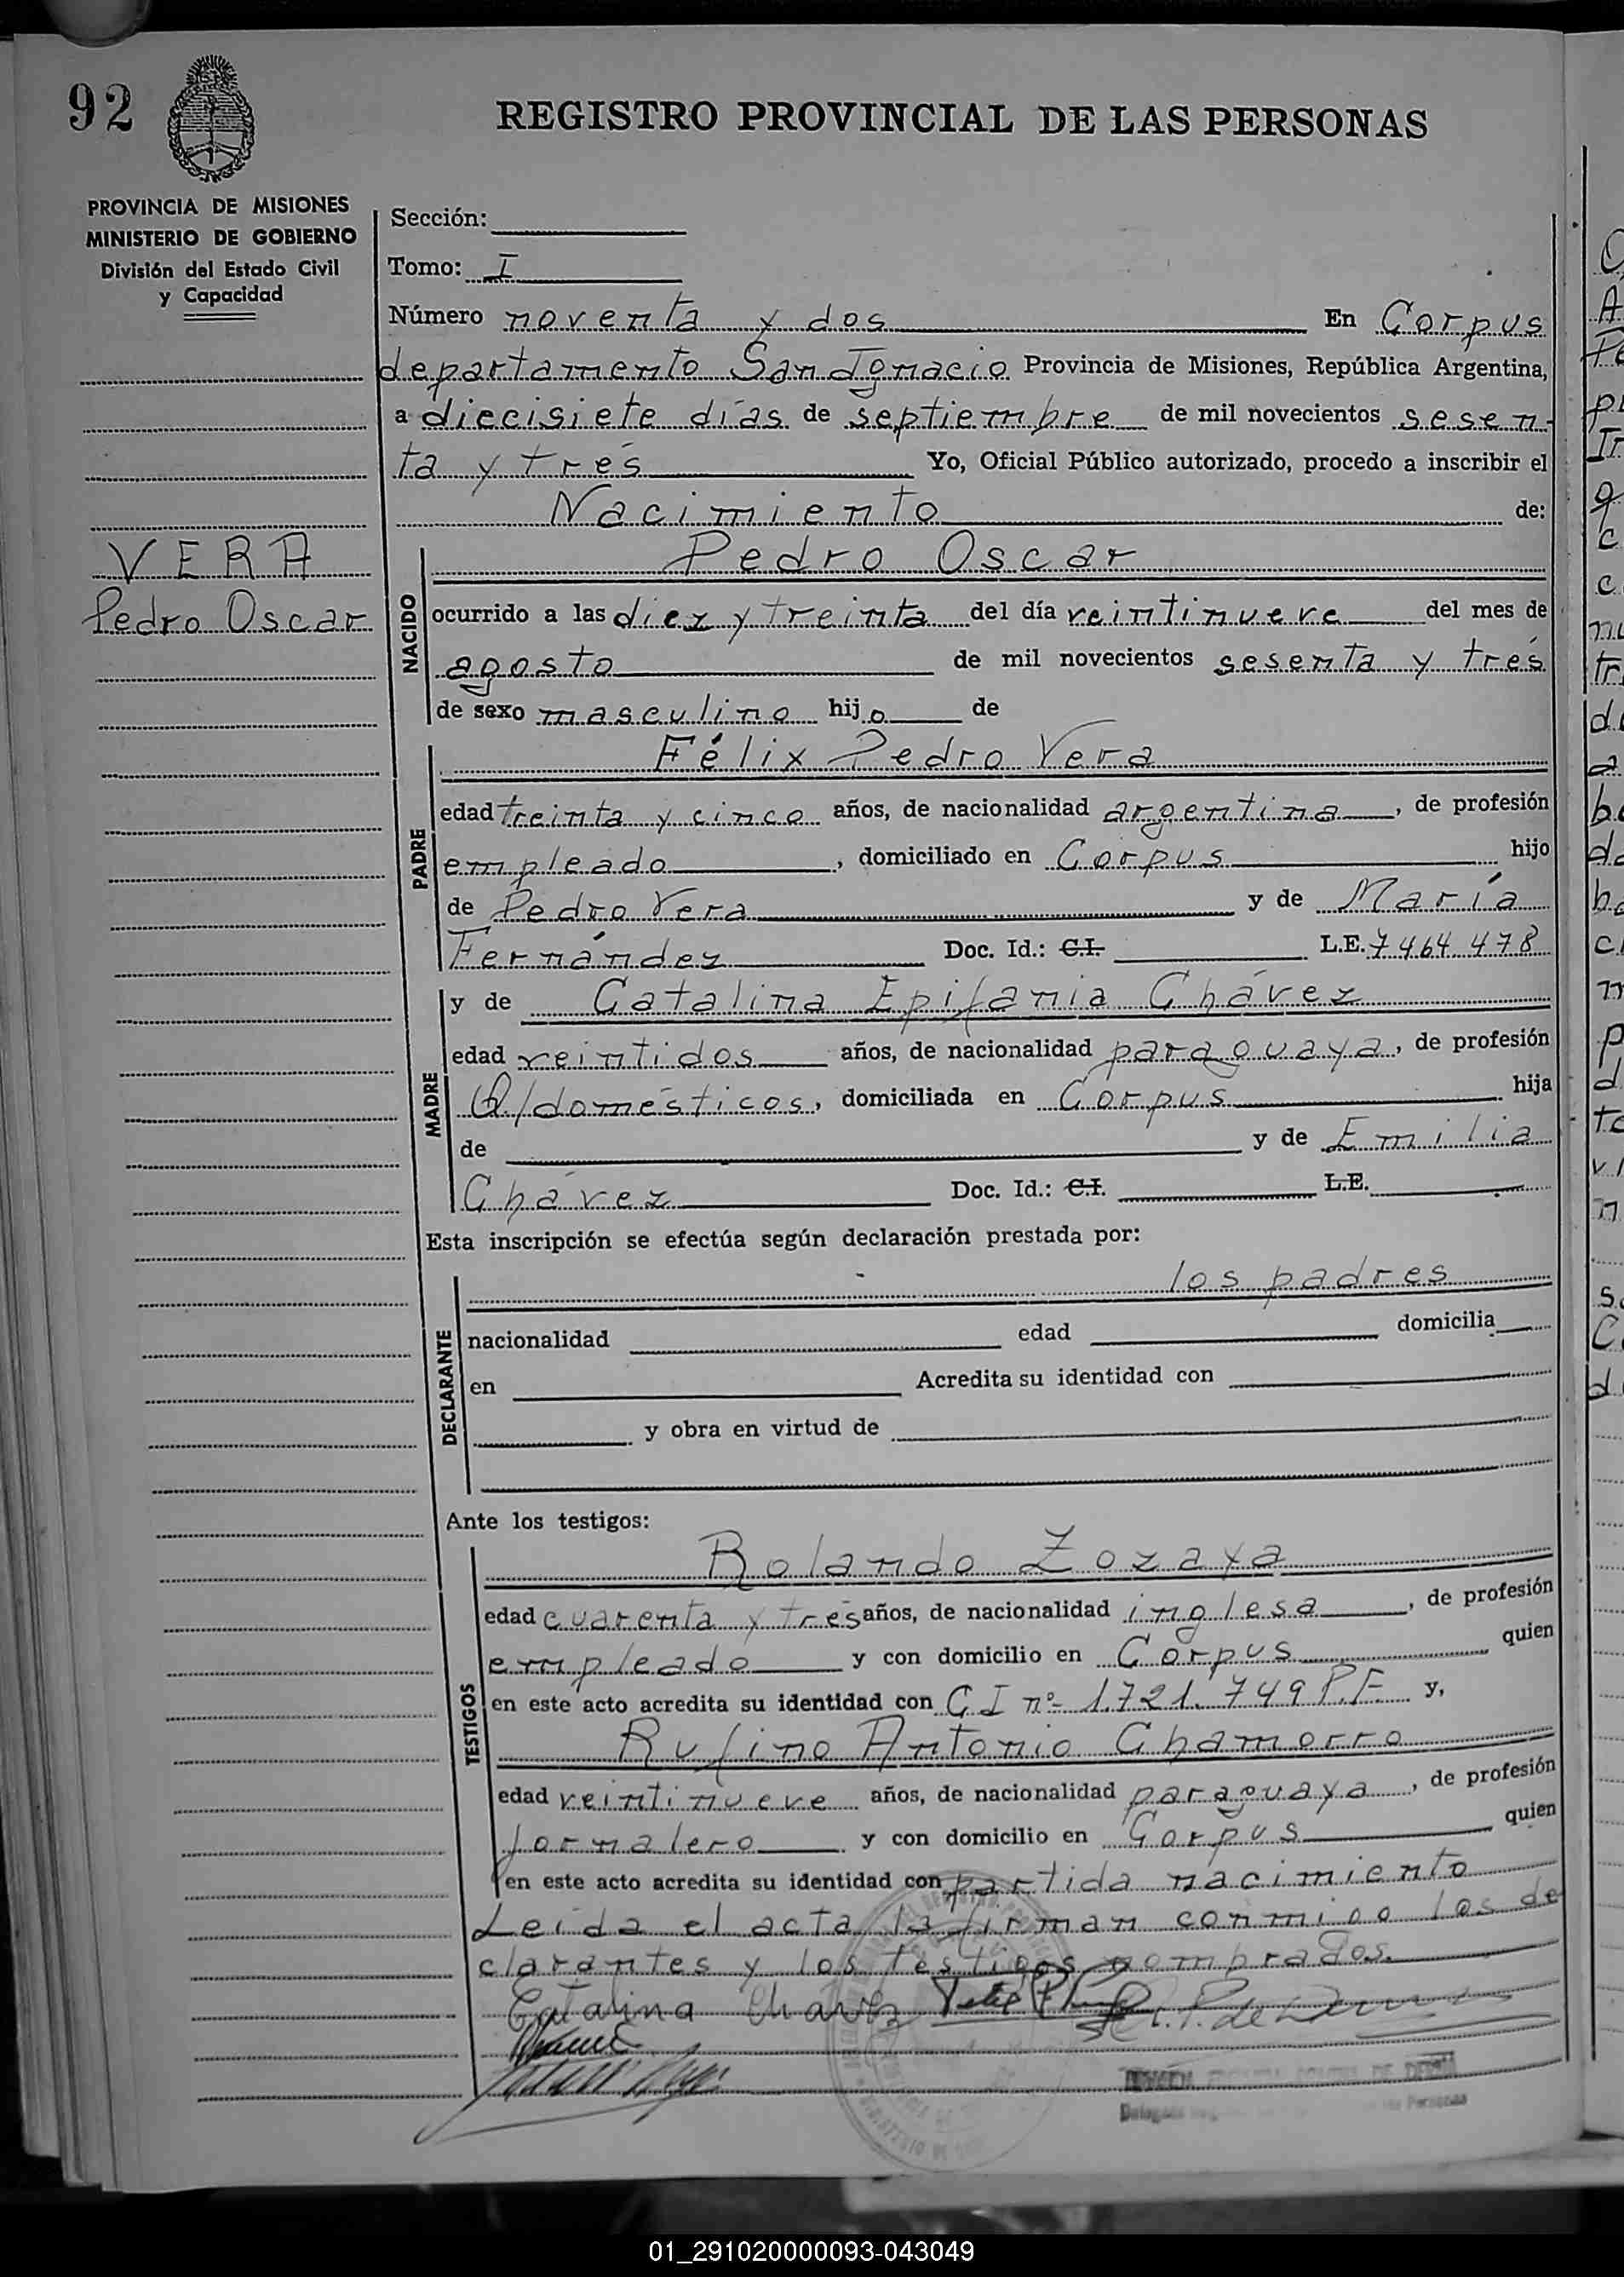 92
REGISTRO PROVINCIAL DE LAS PERSONAS
PROVINCIA DE MISIONES
MINISTERIO DE GOBIERNO
División del Estado Civil
y Capacidad
Sección:
Tomo: I
Número noventa y dos En Corpus
departamento San Ignacio Provincia de Misiones, República Argentina,
a diecisiete días de septiembre de mil novecientos sesen-
ta y trés Yo, Oficial Público autorizado, procedo a inscribir el
Nacimiento de:
VERA
Pedro Oscar
NACIDO
Pedro Oscar
ocurrido a las diez y treinta del día veintinueve del mes de
agosto de mil novecientos sesenta y trés
de sexo masculino hijo de
PADRE
Félix Pedro Vera
edad treinta y cinco años, de nacionalidad argentina, de profesión
empleado, domiciliado en Corpus hijo
de Pedro Vera y de María
Fernández Doc. Id.: C.I. L.E. 7464.478
MADRE
y de Catalina Epifania Chávez
edad veintidos años, de nacionalidad paraguaya, de profesión
Q/domésticos, domiciliada en Corpus hija
de y de Emilia
Chávez Doc. Id.: C.I. L.E.
Esta inscripción se efectúa según declaración prestada por:
DECLARANTE
los padres
nacionalidad edad domicilia
en Acredita su identidad con
y obra en virtud de
Ante los testigos:
TESTIGOS
Rolando Zozaya
edad cuarenta y trés años, de nacionalidad inglesa, de profesión
empleado y con domicilio en Corpus quien
en este acto acredita su identidad con CI nº 1.721.749 P.F. y,
Rufino Antonio Chamorro
edad veintinueve años, de nacionalidad paraguaya, de profesión
jornalero y con domicilio en Corpus quien
en este acto acredita su identidad con partida nacimiento
Leída el acta la firman conmigo los de
clarantes y los testigos nombrados.
Catalina Chávez
01_291020000093-043049